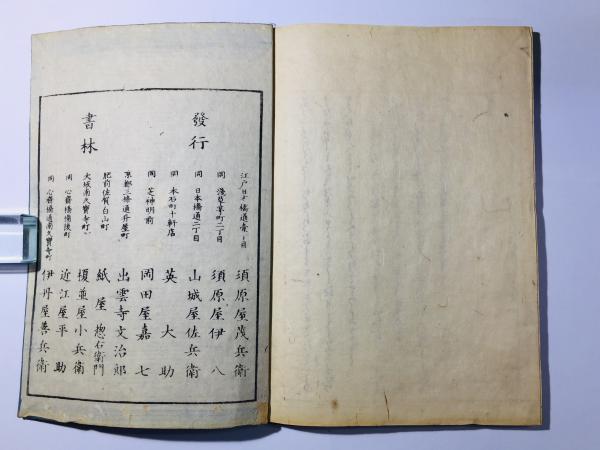 發行
書林
江戸日本橋通壹丁目 須原屋茂兵衛
同 淺草茅町二丁目 須原屋伊八
同 日本橋通二丁目 山城屋佐兵衛
同 本石町十軒店 英大助
同 芝神明前 岡田屋嘉七
京都三條通升屋町 出雲寺文治郎
肥前佐賀白山町 紙屋惣右衛門
大坂南久寶寺町 榎並屋小兵衛
同 心齋橋備後町 近江屋平助
同 心齋橋通南久寶寺町 伊丹屋善兵衛